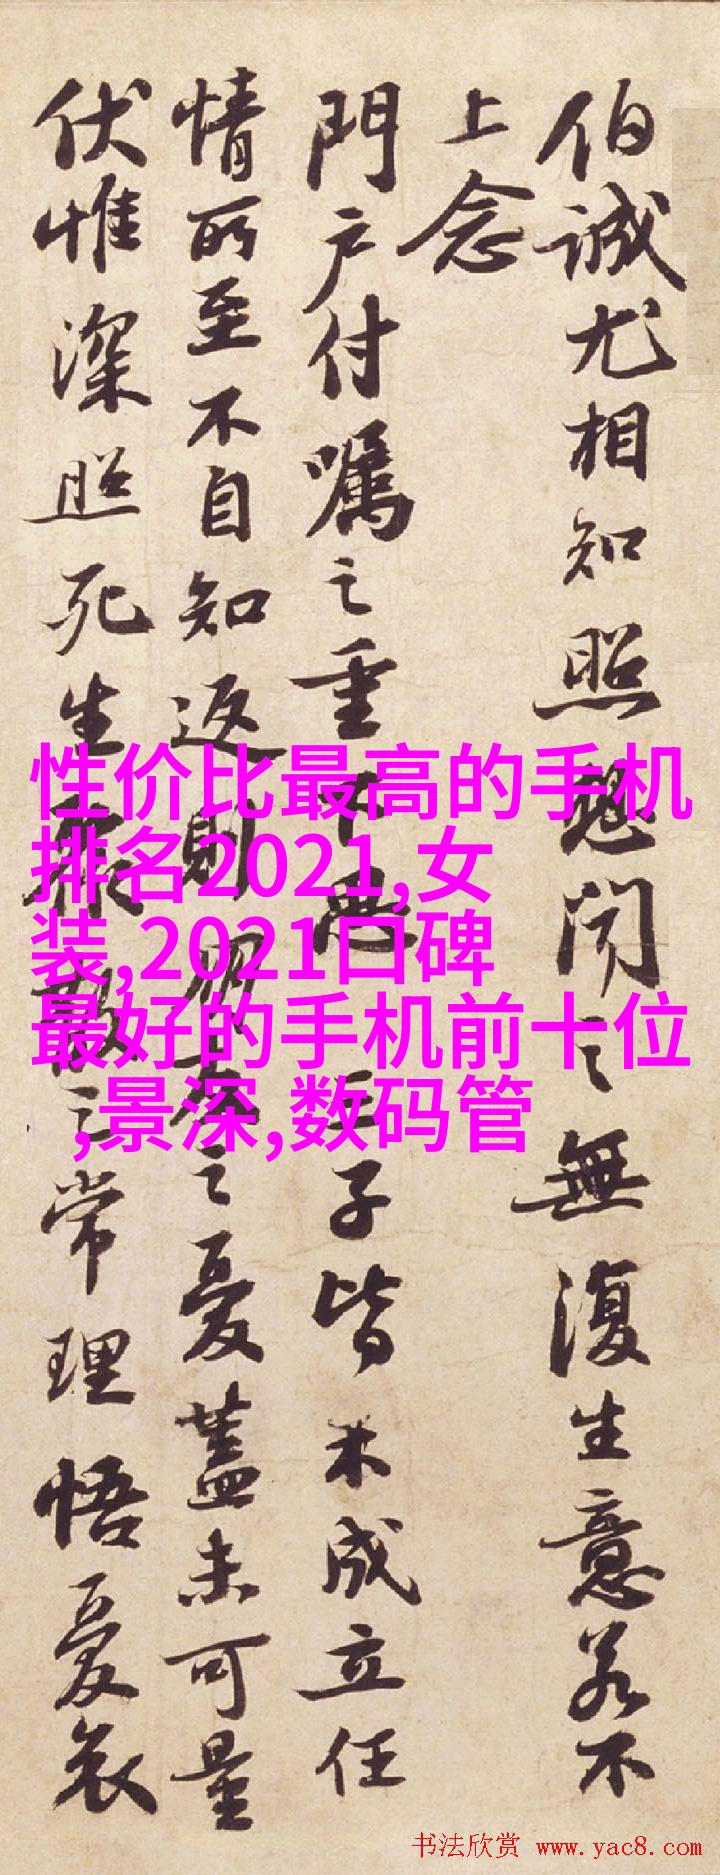 伯誠尤相知照想聞之無復生意若不
上念
門戶付囑之重下思三子皆未成立任
情所至不自知返則朋友之憂蓋未可量
伏惟深照死生聚散之常理悟憂哀
性价比最高的手机
排名2021,女
装,2021口碑
最好的手机前十位
,景深,数码管
书法欣赏 www.yac8.com